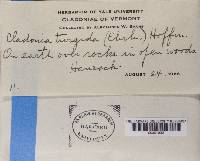 HERBARIUM OF YALE UNIVERSITY
CLADONIAE OF VERMONT
COLLECTED BY ALEXANDER W. EVANS
Cladonia turgida (Ehrh.) Hoffm.
On earth over rocks in open woods
Hancock.
AUGUST 24,
11.
HARVARD